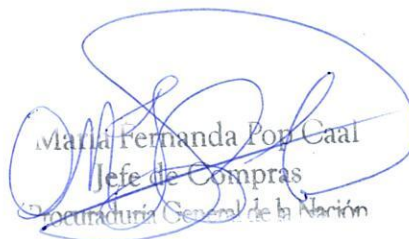 María Fernanda Pop Caal
Jefe de Compras
Procuraduría General de la Nación